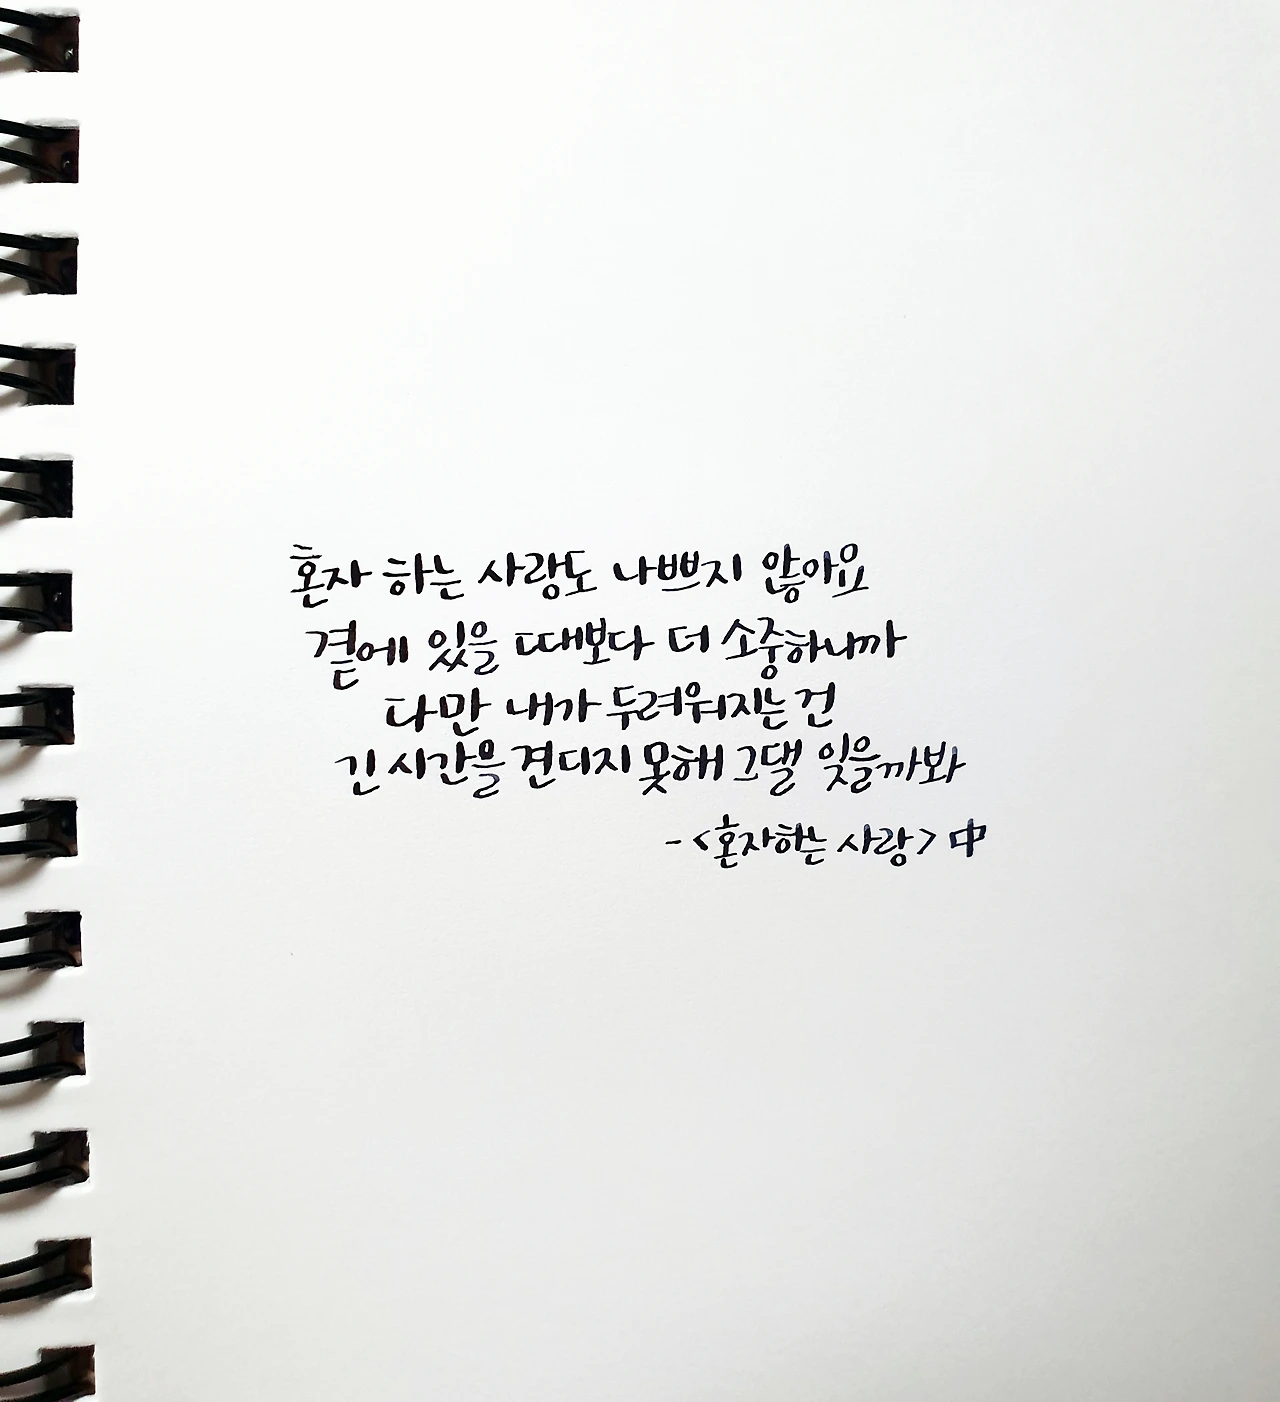 혼자 하는 사랑도 나쁘지 않아요
곁에 있을 때보다 더 소중하니까
다만 내가 두려워지는 건
긴 시간을 견디지 못해 그댈 잊을까봐
- <혼자하는 사랑> 中